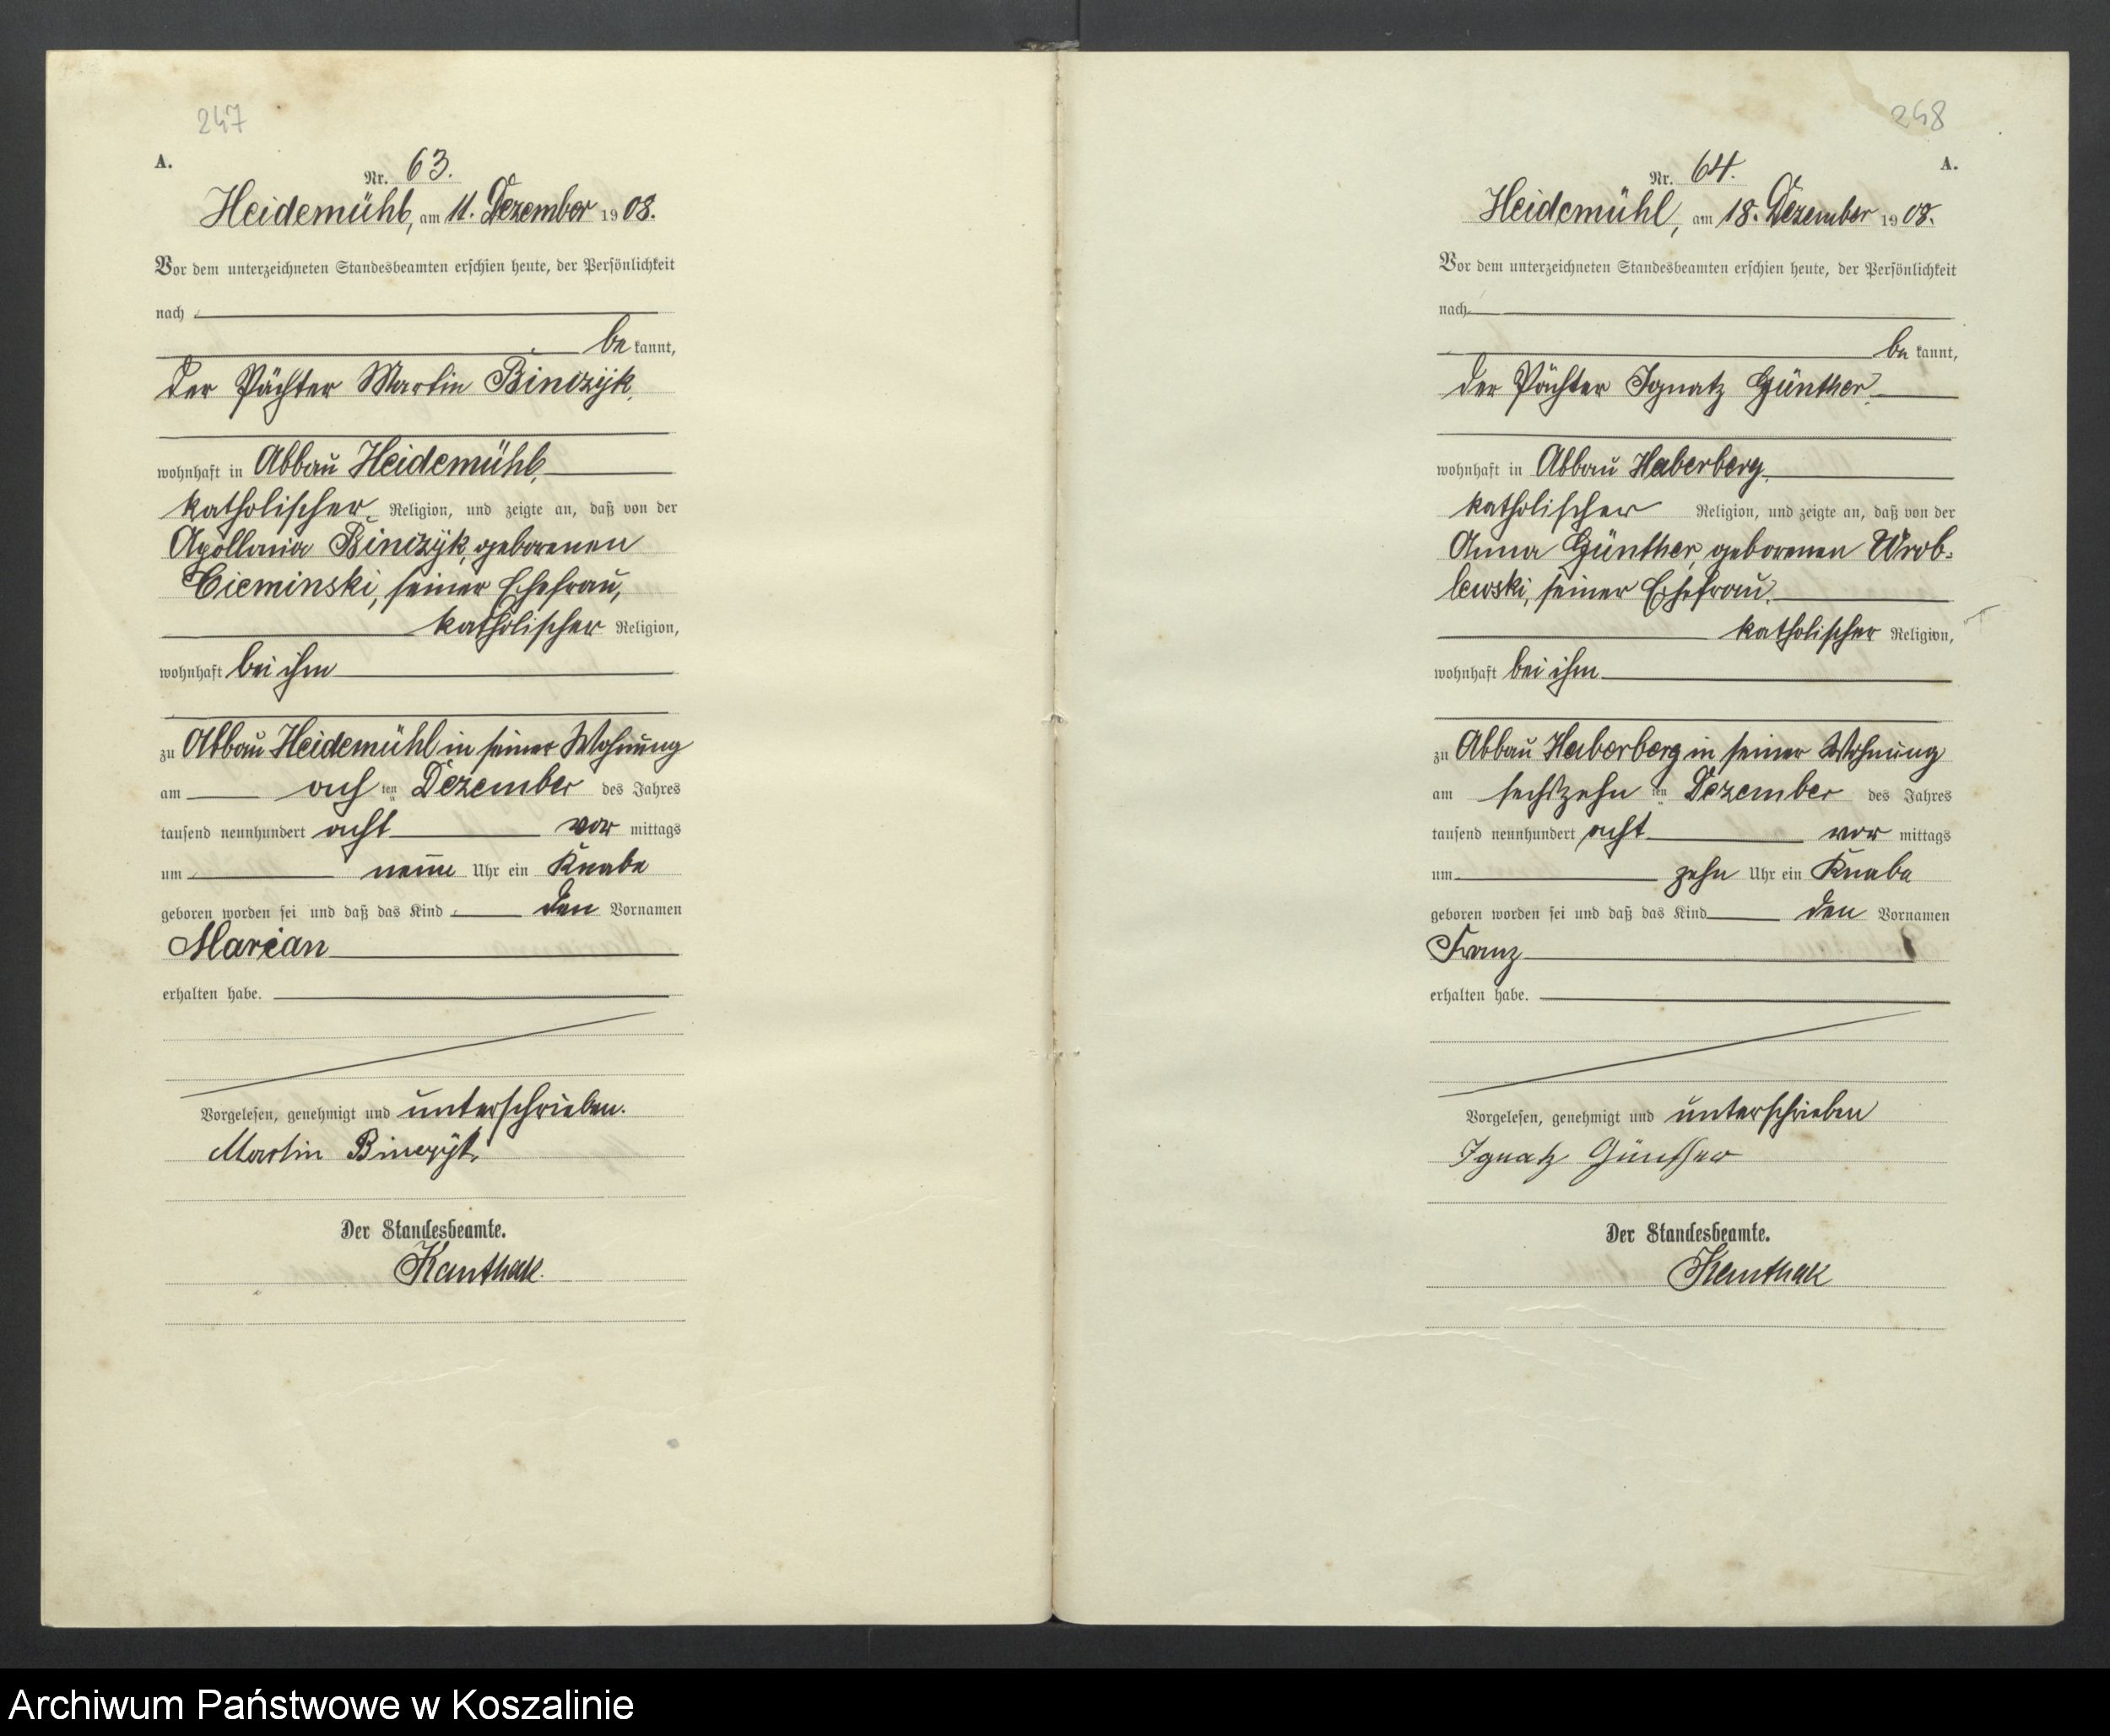 247
A.
Nr. 63.
Heidemühl, am 11. Dezember 1908.
Vor dem unterzeichneten Standesbeamten erschien heute, der Persönlichkeit
nach
be kannt,
der Pächter Martin Binczyk,
wohnhaft in Abbau Heidemühl,
katholischer Religion, und zeigte an, daß von der
Apollonia Binczyk, geborenen
Cieminski, seiner Ehefrau,
katholischer Religion,
wohnhaft bei ihm
zu Abbau Heidemühl in seiner Wohnung
am ach ten Dezember des Jahres
tausend neunhundert acht vor mittags
um neun Uhr ein Knabe
geboren worden sei und daß das Kind den Vornamen
Marian
erhalten habe.
Vorgelesen, genehmigt und unterschrieben.
Martin Binczyk.
Der Standesbeamte.
Kanthak.
248
A.
Nr. 64.
Heidemühl, am 18. Dezember 1908.
Vor dem unterzeichneten Standesbeamten erschien heute, der Persönlichkeit
nach
be kannt,
der Pächter Ignatz Günther,
wohnhaft in Abbau Haberberg,
katholischer Religion, und zeigte an, daß von der
Anna Günther, geborenen Wrob-
lewski, seiner Ehefrau,
katholischer Religion,
wohnhaft bei ihm
zu Abbau Haberberg in seiner Wohnung
am sechszehn ten Dezember des Jahres
tausend neunhundert acht vor mittags
um zehn Uhr ein Knabe
geboren worden sei und daß das Kind den Vornamen
Franz
erhalten habe.
Vorgelesen, genehmigt und unterschrieben
Ignatz Günther
Der Standesbeamte.
Kanthak
Archiwum Państwowe w Koszalinie